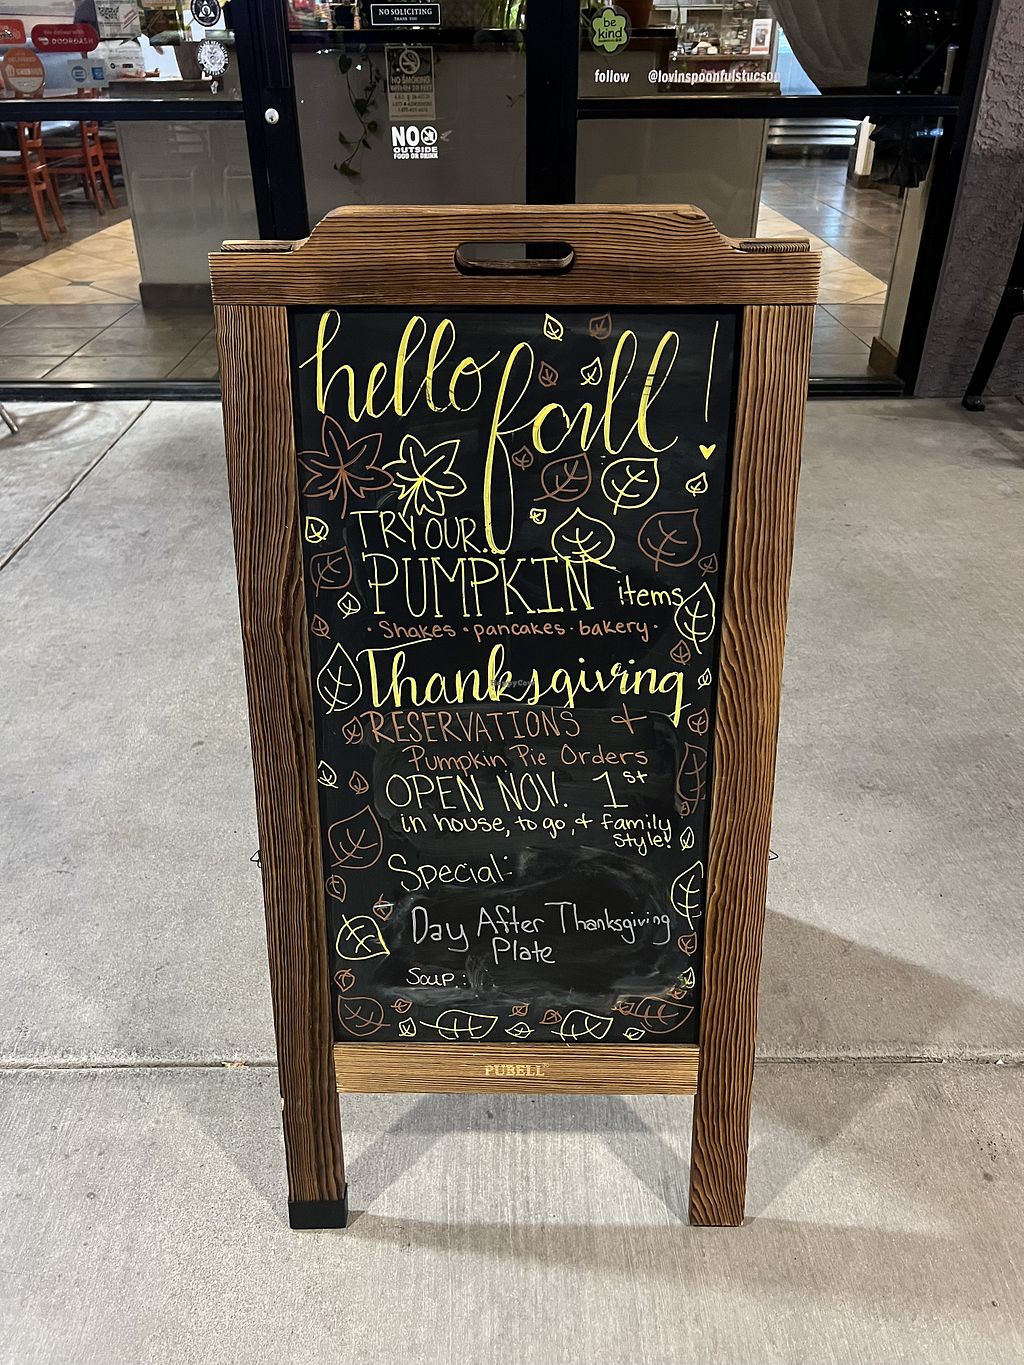 NO SOLICITING
THANK YOU
be
kind
We deliver with
DOORDASH
follow @lovinspoonfulstucson
NO SMOKING
NO
OUTSIDE
FOOD OR DRINK
hello fall!
TRY OUR...
PUMPKIN items
· Shakes · pancakes · bakery ·
Thanksgiving
RESERVATIONS +
Pumpkin Pie Orders
OPEN NOV. 1st
in house, to go, + family
style!
Special:
Day After Thanksgiving
Plate
Soup:
PUBELL